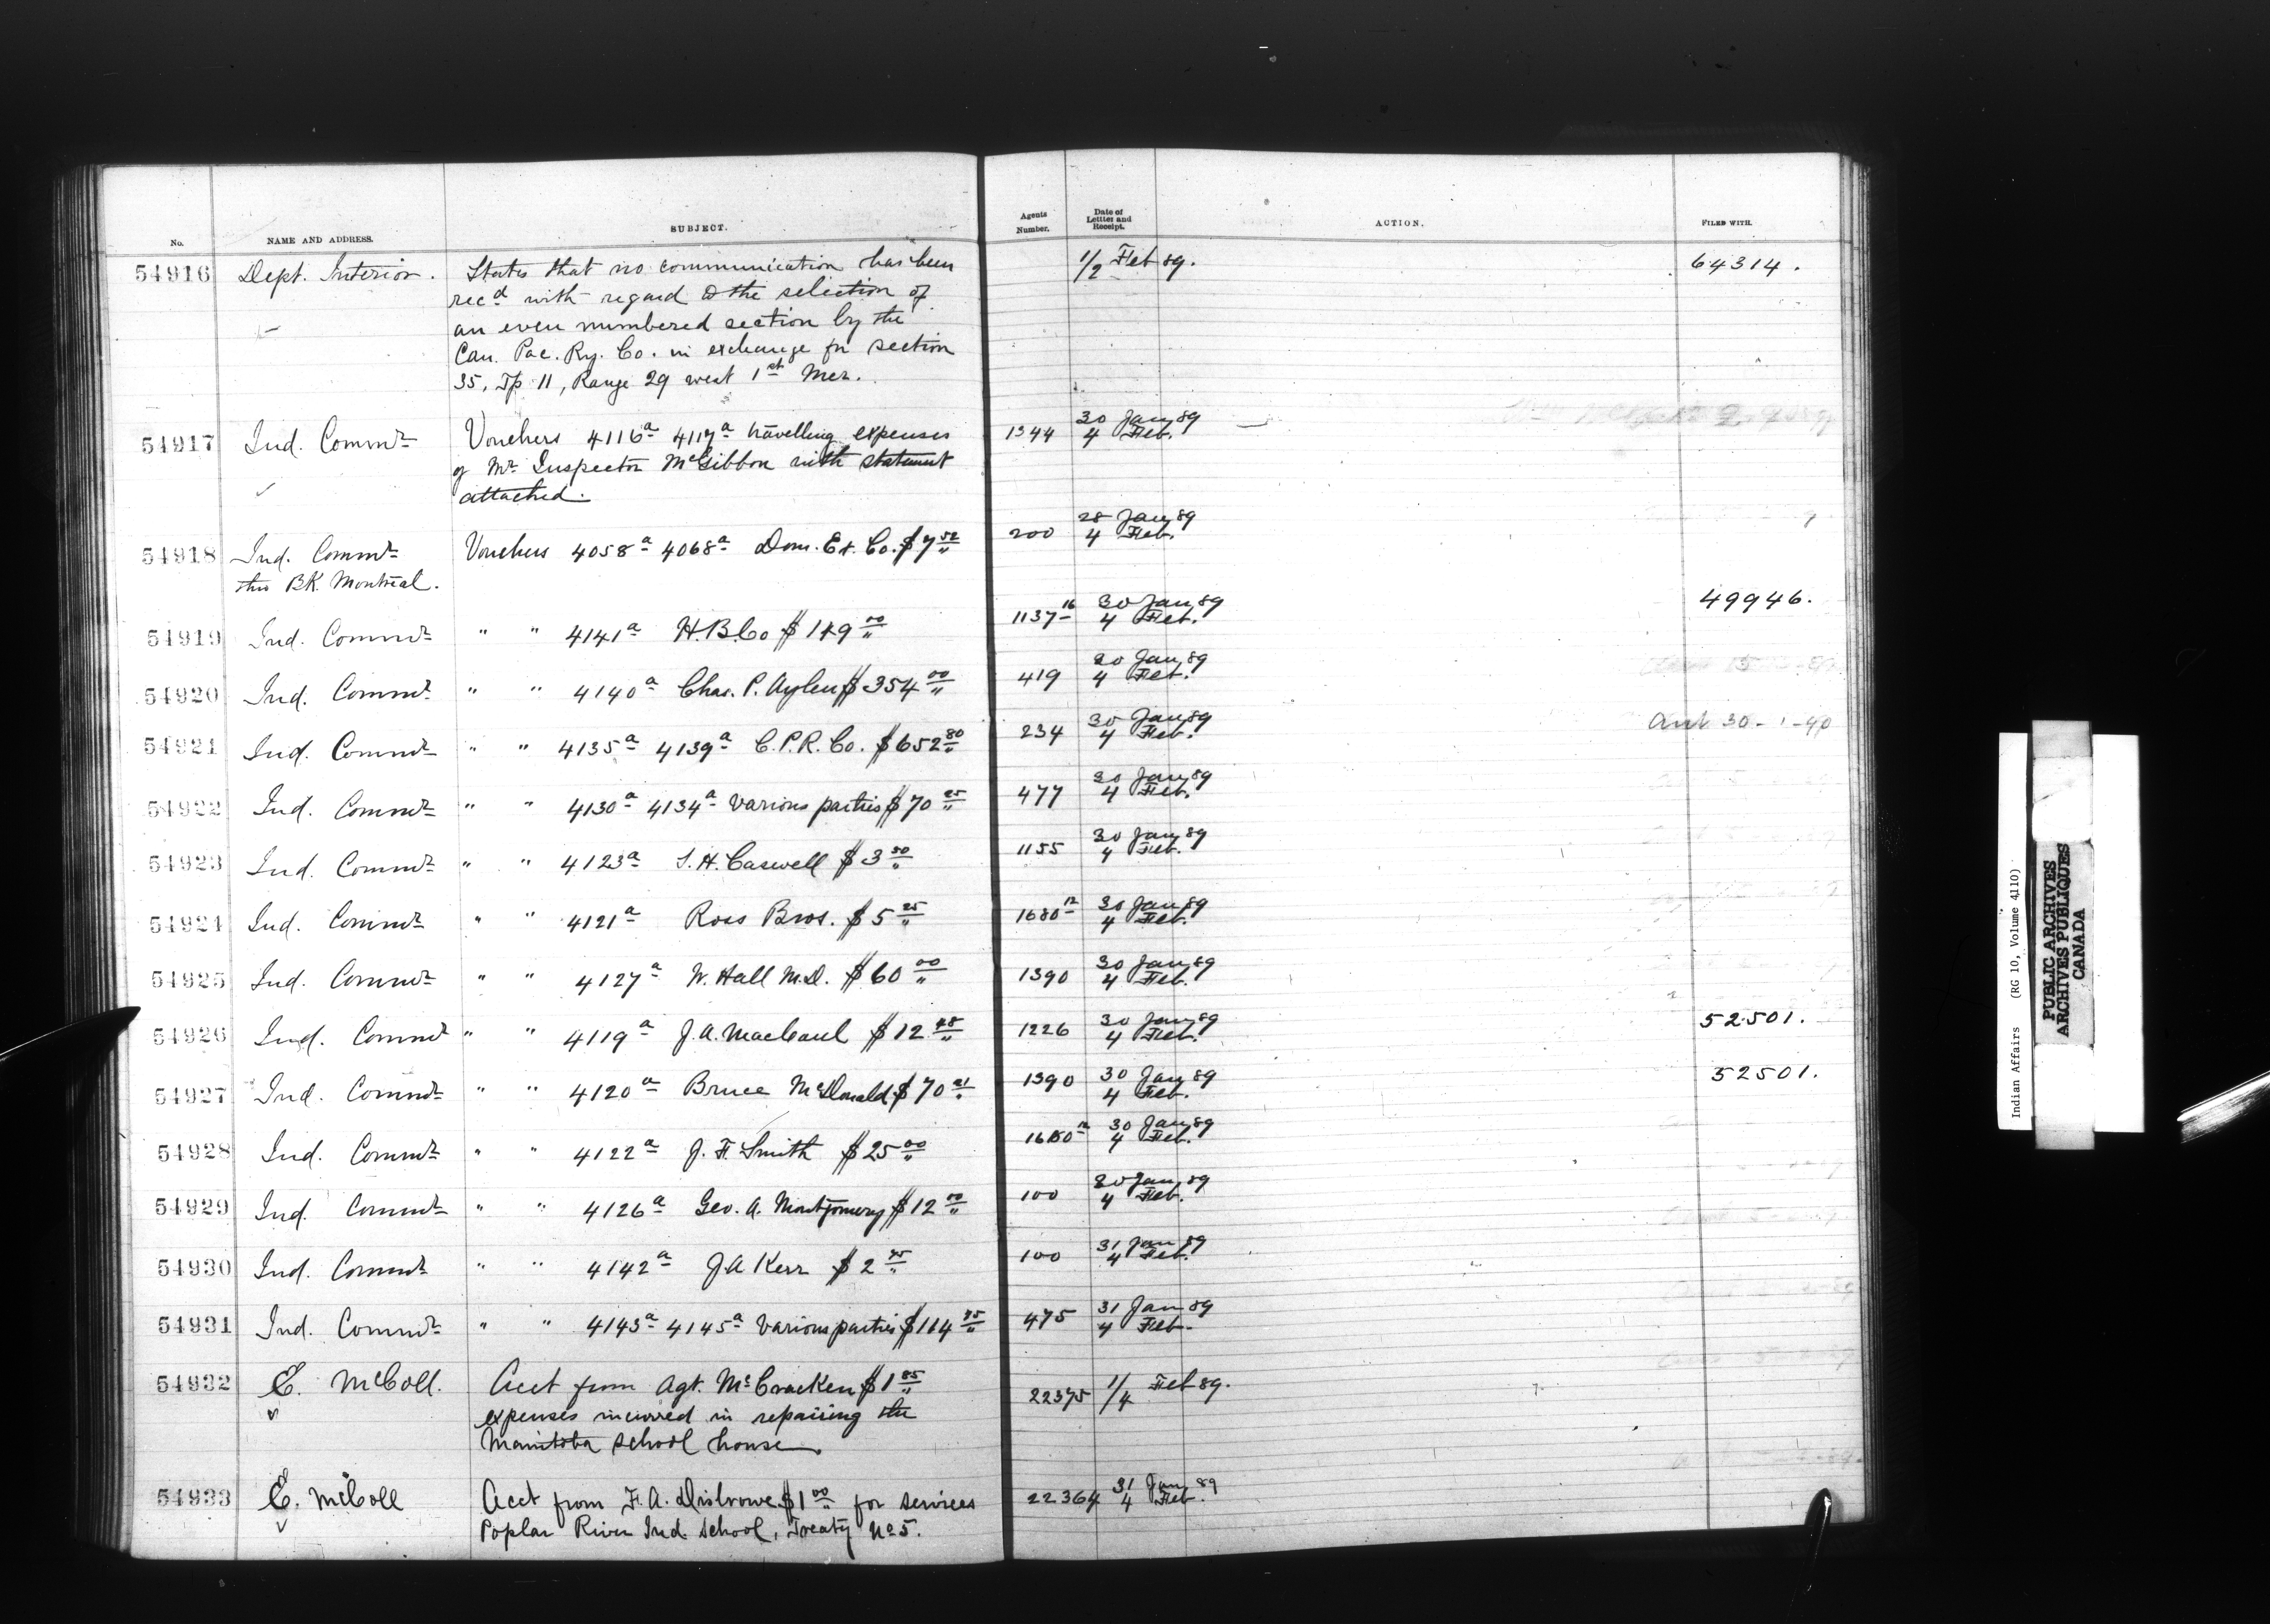 No. NAME AND ADDRESS. SUBJECT. Agents Number. Date of Letter and Receipt. ACTION. FILED WITH.
54916 Dept. Interior. States that no communication has been 1/2 Feb 89. 64314.
rec'd with regard to the selection of
an even numbered section by the
Can. Pac. Ry. Co. in exchange for section
35, Tp 11, Range 29 west 1st Mer.
54917 Ind. Commr Vouchers 4116a 4117a travelling expenses 1344 30 Jany 89
of Mr Inspector McGibbon with statement 4 Feb.
attached.
54918 Ind. Commr Vouchers 4058a 4068a Dom. Ex. Co. $7 52 200 28 Jany 89
thro BK. Montreal. 4 Feb.
54919 Ind. Commr " " 4141a H.B.Co $149 00 1137 16 30 Jany 89 49946.
4 Feb.
54920 Ind. Commr " " 4140a Chas. P. Aylen $354 00 419 30 Jany 89
4 Feb.
54921 Ind. Commr " " 4135a 4139a C.P.R. Co. $652 80 234 30 Jany 89
4 Feb.
54922 Ind. Commr " " 4130a 4134a Various parties $70 25 477 30 Jany 89
4 Feb.
54923 Ind. Commr " " 4123a S. H. Caswell $3 50 1155 30 Jany 89
4 Feb.
54924 Ind. Commr " " 4121a Ross Bros. $5 25 1680 12 30 Jany 89
4 Feb.
54925 Ind. Commr " " 4127a W. Hall M.D. $60 00 1390 30 Jany 89
4 Feb.
54926 Ind. Commr " " 4119a J. A. MacCaul $12 1226 30 Jany 89 52501.
4 Feb.
54927 Ind. Commr " " 4120a Bruce McDonald $70 21 1390 30 Jany 89 52501.
4 Feb.
54928 Ind. Commr " " 4122a J. F. Smith $25 00 1680 12 30 Jany 89
4 Feb.
54929 Ind. Commr " " 4126a Geo. A. Montgomery $12 00 100 30 Jany 89
4 Feb.
54930 Ind. Commr " " 4142a J A Kerr $2 100 31 Jany 89
4 Feb.
54931 Ind. Commr " " 4143a 4145a Various parties $114 75 475 31 Jany 89
4 Feb.
54932 E. McColl. Acct from Agt. McCracken $1 85 22375 1/4 Feb 89.
expenses incurred in repairing the
Manitoba school house
54933 E. McColl Acct from F. A. Disbrowe $1 00 for services 22364 31 Jany 89
Poplar River Ind. School, Treaty No 5. 4 Feb.
Indian Affairs (RG 10, Volume 4110)
PUBLIC ARCHIVES
ARCHIVES PUBLIQUES
CANADA